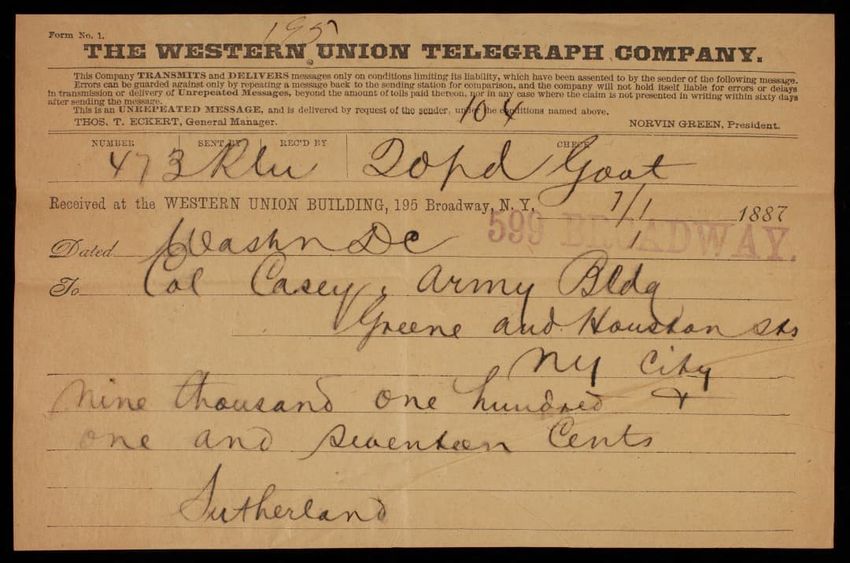 Form No. 1.
195
THE WESTERN UNION TELEGRAPH COMPANY.
This Company TRANSMITS and DELIVERS messages only on conditions limiting its liability, which have been assented to by the sender of the following message.
Errors can be guarded against only by repeating a message back to the sending station for comparison, and the company will not hold itself liable for errors or delays
in transmission or delivery of Unrepeated Messages, beyond the amount of tolls paid thereon, nor in any case where the claim is not presented in writing within sixty days
after sending the message.
This is an UNREPEATED MESSAGE, and is delivered by request of the sender, under the conditions named above.
104
THOS. T. ECKERT, General Manager. NORVIN GREEN, President.
NUMBER SENT BY REC'D BY CHECK
473 20 pd Govt
Received at the WESTERN UNION BUILDING, 195 Broadway, N. Y. 7/1 1887
599 BROADWAY.
Dated Washn DC
To Col Casey, Army Bldg
Greene and Houston Sts
NY City
Nine thousand one hundred &
one and seventeen Cents
Sutherland